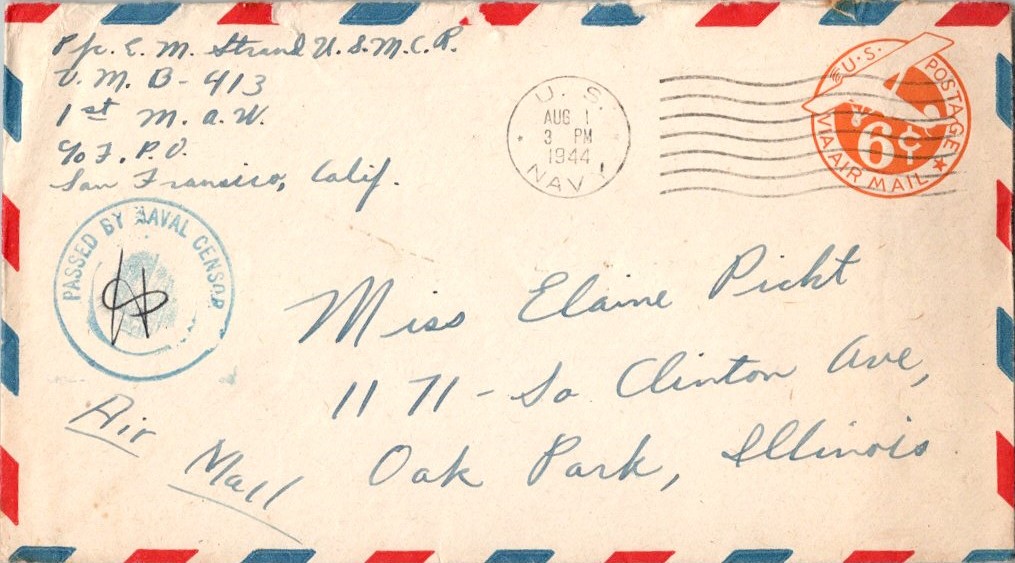 Pfc. E. M. Strand U.S.M.C.R.
V. M. B - 413
1st M. a. W.
c/o F. P. O.
San Fransico, Calif.
U. S.
AUG 1
3 PM
1944
NAVY
U.S. POSTAGE
6¢
VIA AIR MAIL
PASSED BY NAVAL CENSOR
Miss Elaine Picht
1171 - So Clinton Ave,
Oak Park, Illinois
Air Mail